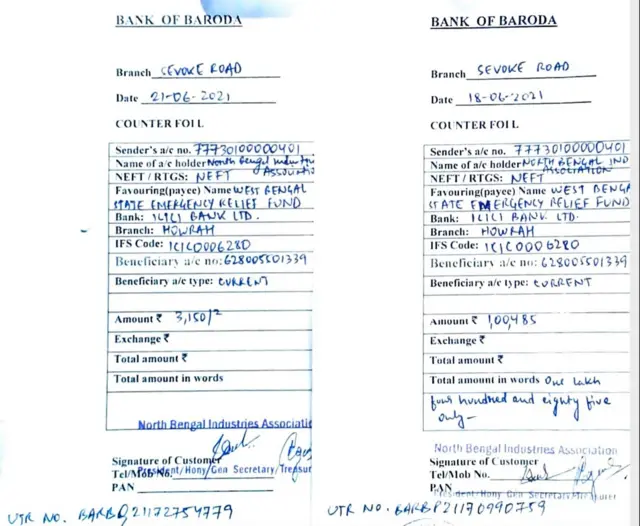 BANK OF BARODA
Branch SEVOKE ROAD
Date 21-06-2021
COUNTER FOIL
Sender's a/c no. 77730100000401
Name of a/c holder North Bengal Industries
ASSOCIATION
NEFT / RTGS: NEFT
Favouring(payee) Name WEST BENGAL
STATE EMERGENCY RELIEF FUND
Bank: ICICI BANK LTD.
Branch: HOWRAH
IFS Code: ICIC0006280
Beneficiary a/c no: 628005501339
Beneficiary a/c type: CURRENT
Amount ₹ 3,150/=
Exchange ₹
Total amount ₹
Total amount in words
North Bengal Industries Associatio
Signature of Customer
Tel/Mob No.
President/Hony Gen Secretary/Treasur
PAN
UTR NO. BARBP21172754779
BANK OF BARODA
Branch SEVOKE ROAD
Date 18-06-2021
COUNTER FOIL
Sender's a/c no. 77730100000401
Name of a/c holder NORTH BENGAL IND
ASSOCIATION
NEFT / RTGS: NEFT
Favouring(payee) Name WEST BENGA
STATE EMERGENCY RELIEF FUND
Bank: ICICI BANK LTD.
Branch: HOWRAH
IFS Code: ICIC0006280
Beneficiary a/c no: 628005501339
Beneficiary a/c type: CURRENT
Amount ₹ 1,00,485
Exchange ₹
Total amount ₹
Total amount in words One Lakh
four hundred and eighty five
only-
North Bengal Industries Association
Signature of Customer
Tel/Mob No.
PAN
President/Hony Gen Secretary/Treasurer
UTR NO. BARBP21170990759